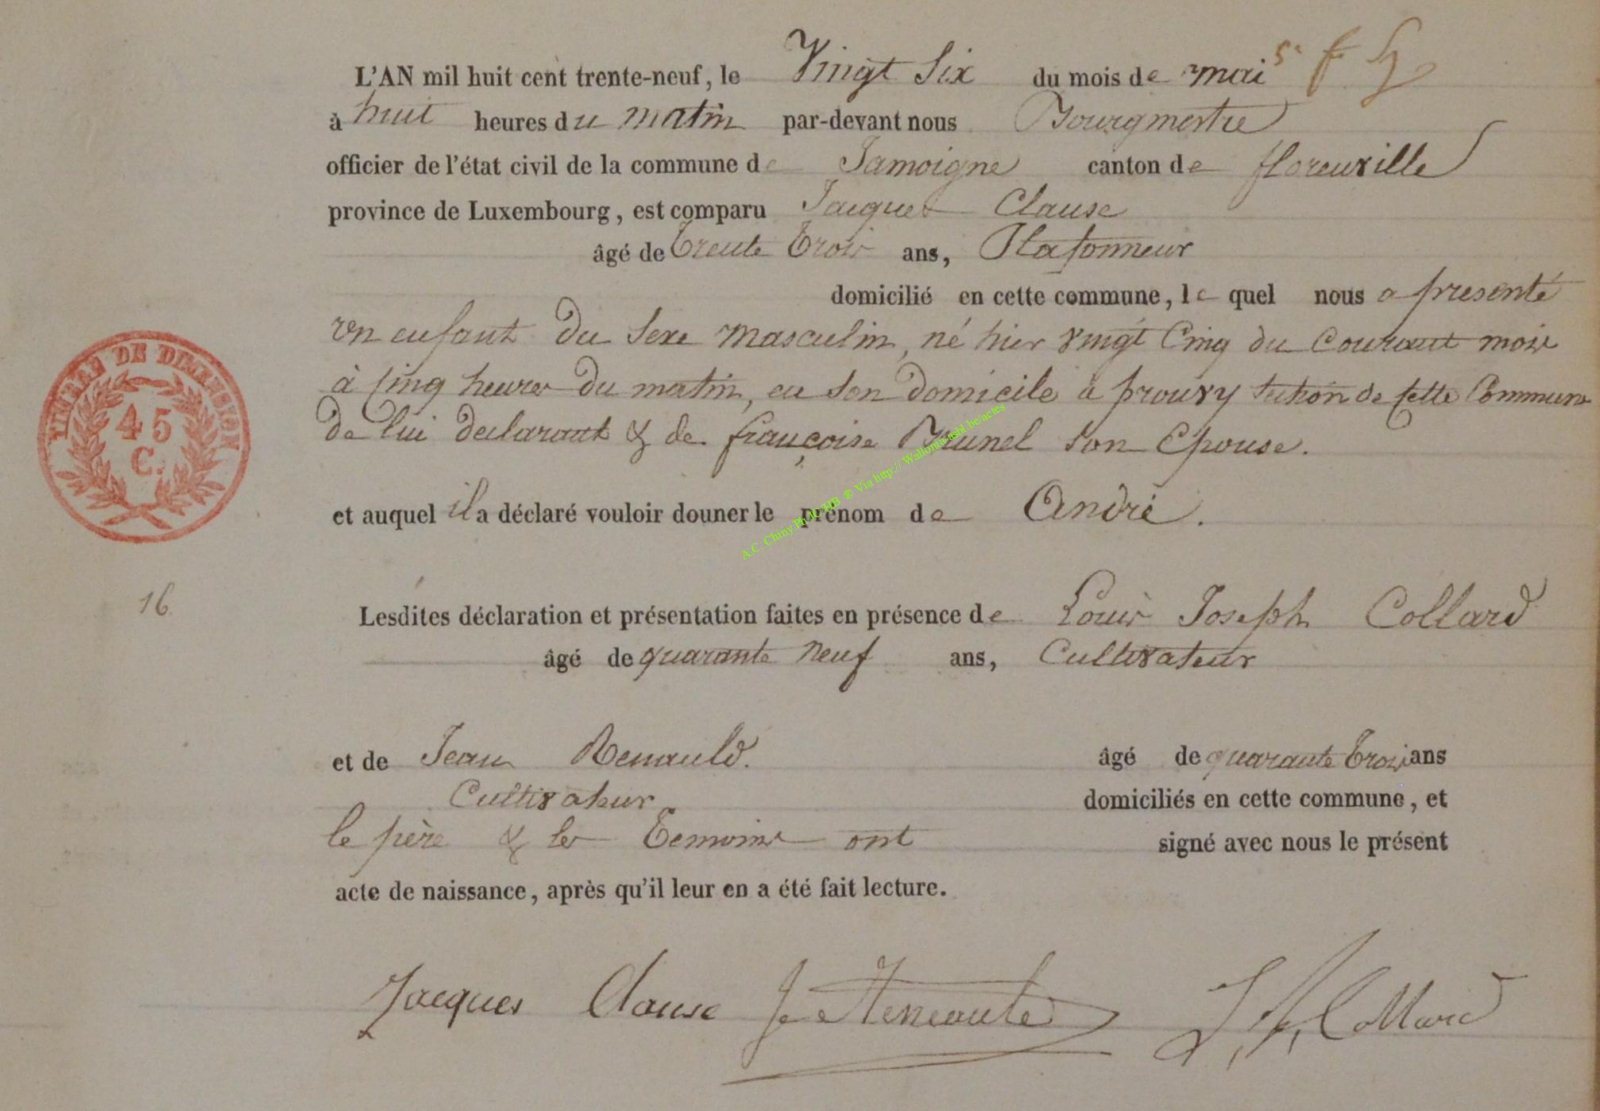 L'AN mil huit cent trente-neuf, le Vingt Six du mois de mai
à huit heures du matin par-devant nous Bourgmestre
officier de l'état civil de la commune de Jamoigne canton de florenville
province de Luxembourg, est comparu Jacques Clause
âgé de trente trois ans, Plafonneur
domicilié en cette commune, le quel nous a presenté
un enfant du sexe masculin, né hier vingt cinq du courant mois
à cinq heures du matin, en son domicile à prouvy section de cette Commune
de lui declarant & de françoise Brunel son Epouse.
et auquel il a déclaré vouloir donner le prénom de André.
TIMBRE DE DIMENSION
45
C.
16
Lesdites déclaration et présentation faites en présence de Louis Joseph Collard
âgé de quarante neuf ans, Cultivateur
et de Jean Renauld. âgé de quarante trois ans
Cultivateur domiciliés en cette commune, et
le père & les temoins ont signé avec nous le présent
acte de naissance, après qu'il leur en a été fait lecture.
Jacques Clause L, J, Collard